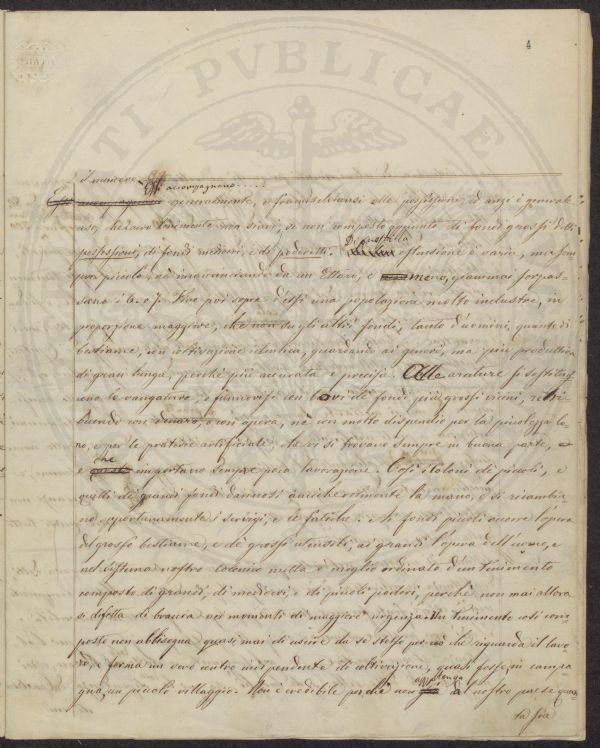 TI PVBLICAE
4
accompagnano
generalmente, o frammischiansi alle possessioni, ed anzi è general
uso, che raro tenimento non siavi, se non composto appunto di fondi grossi detti
possessioni, di fondi mediocri, e di poderetti. estensione è varia, ma sem
pre piccola, nè incominciando da un Ettaro, e meno, giammai sorpas-
sano i 6. o 7. Vive poi sopra d'essi una popolazione molto industre, in
proporzione maggiore, che non sugli altri fondi, tanto d'uomini, quanto di
bestiame, con coltivazione identica, guardando ai generi, ma più produttiva
di gran lunga, perchè più accurata e precisa. Alle arature si sostitui
scono le vangature, o funnovisi con bovi de' fondi più grossi vicini, retri
buendo con denaro, o con opera, nè con molto dispendio per la piccolezza lo
ro, e per le praterie artificiate, che vi si trovano sempre in buona parte,
e che importano sempre poca lavorazione. Così i coloni de' piccoli, e
quelli de' grandi fondi dannosi amichevolmente la mano, e si ricambia
no opportunamente i servizi, e le fatiche. Ai fondi piccoli occorre l'opera
del grosso bestiame, e de' grossi utensili, ai grandi l'opera dell'uomo, e
nel sistema nostro colonico nulla è meglio ordinato d'un tenimento
composto di grandi, di mediocri, e di piccoli poderi, perchè non mai allora
si difetta di braccia nei momenti di maggiore urgenza. Un tenimento così com
posto non abbisogna quasi mai di uscire da se stesso per ciò che riguarda il lavo
ro, e forma un vero centro indipendente di coltivazione, quasi fosse, in campa
gna, un piccolo villaggio. Non è credibile perchè non al nostro paese qua
ta sia